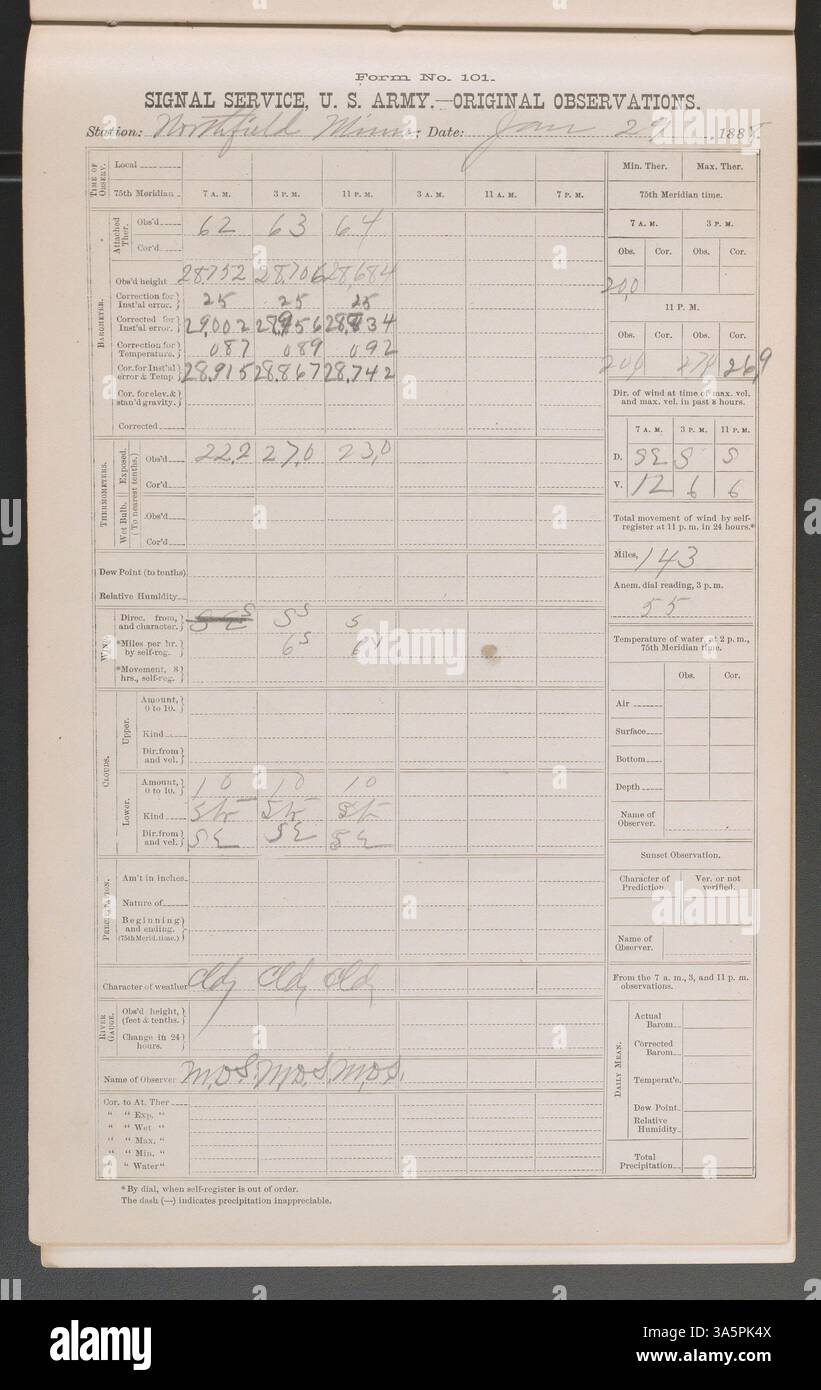 Form No. 101.
SIGNAL SERVICE, U. S. ARMY.—ORIGINAL OBSERVATIONS.
Station: Northfield Minn; Date: Jan 29, 188
TIME OF OBSERV.
Local
75th Meridian 7 A. M. 3 P. M. 11 P. M. 3 A. M. 11 A. M. 7 P. M.
BAROMETER.
Attached Ther.
Obs'd 62 63 64
Cor'd
Obs'd height 28.752 28.706 28.684
Correction for Inst'al error. 25 25 25
Corrected for Inst'al error. 29.002 28.956 28.834
Correction for Temperature. 087 089 092
Cor. for Inst'al error & Temp 28.915 28.867 28.742
Cor. for elev. & stan'd gravity.
Corrected
THERMOMETERS.
Exposed.
Wet Bulb.
(To nearest tenths.)
Obs'd 22.2 27.0 23.0
Cor'd
Obs'd
Cor'd
Dew Point (to tenths)
Relative Humidity
WIND.
Direc. from, and character. S S S S
*Miles per hr. by self-reg. 6 S 6
*Movement, 8 hrs., self-reg.
CLOUDS.
Upper.
Amount, 0 to 10.
Kind
Dir. from and vel.
Lower.
Amount, 0 to 10. 10 10 10
Kind Str Str St
Dir. from and vel. SE SE SE
PRECIPITATION.
Am't in inches
Nature of
Beginning and ending. (75th Merid. time.)
Character of weather Cldy Cldy Cldy
RIVER GAUGE.
Obs'd height, (feet & tenths.)
Change in 24 hours.
Name of Observer M.D.S. M.D.S. M.D.S.
Cor. to At. Ther
" " Exp. "
" " Wet "
" " Max. "
" " Min. "
" Water "
*By dial, when self-register is out of order.
The dash (—) indicates precipitation inappreciable.
Min. Ther. Max. Ther.
75th Meridian time.
7 A. M. 3 P. M.
Obs. Cor. Obs. Cor.
20,0
11 P. M.
Obs. Cor. Obs. Cor.
26,9
Dir. of wind at time of max. vel. and max. vel. in past 8 hours.
7 A. M. 3 P. M. 11 P. M.
D. SE S S
V. 12 6 6
Total movement of wind by self-register at 11 p. m. in 24 hours.*
Miles, 143
Anem. dial reading, 3 p. m.
55
Temperature of water, at 2 p. m., 75th Meridian time.
Obs. Cor.
Air
Surface
Bottom
Depth
Name of Observer.
Sunset Observation.
Character of Prediction. Ver. or not verified.
Name of Observer.
From the 7 a. m., 3, and 11 p. m. observations.
DAILY MEAN.
Actual Barom.
Corrected Barom.
Temperat'e.
Dew Point.
Relative Humidity.
Total Precipitation.
alamy
Image ID: 3A5PK4X
www.alamy.com